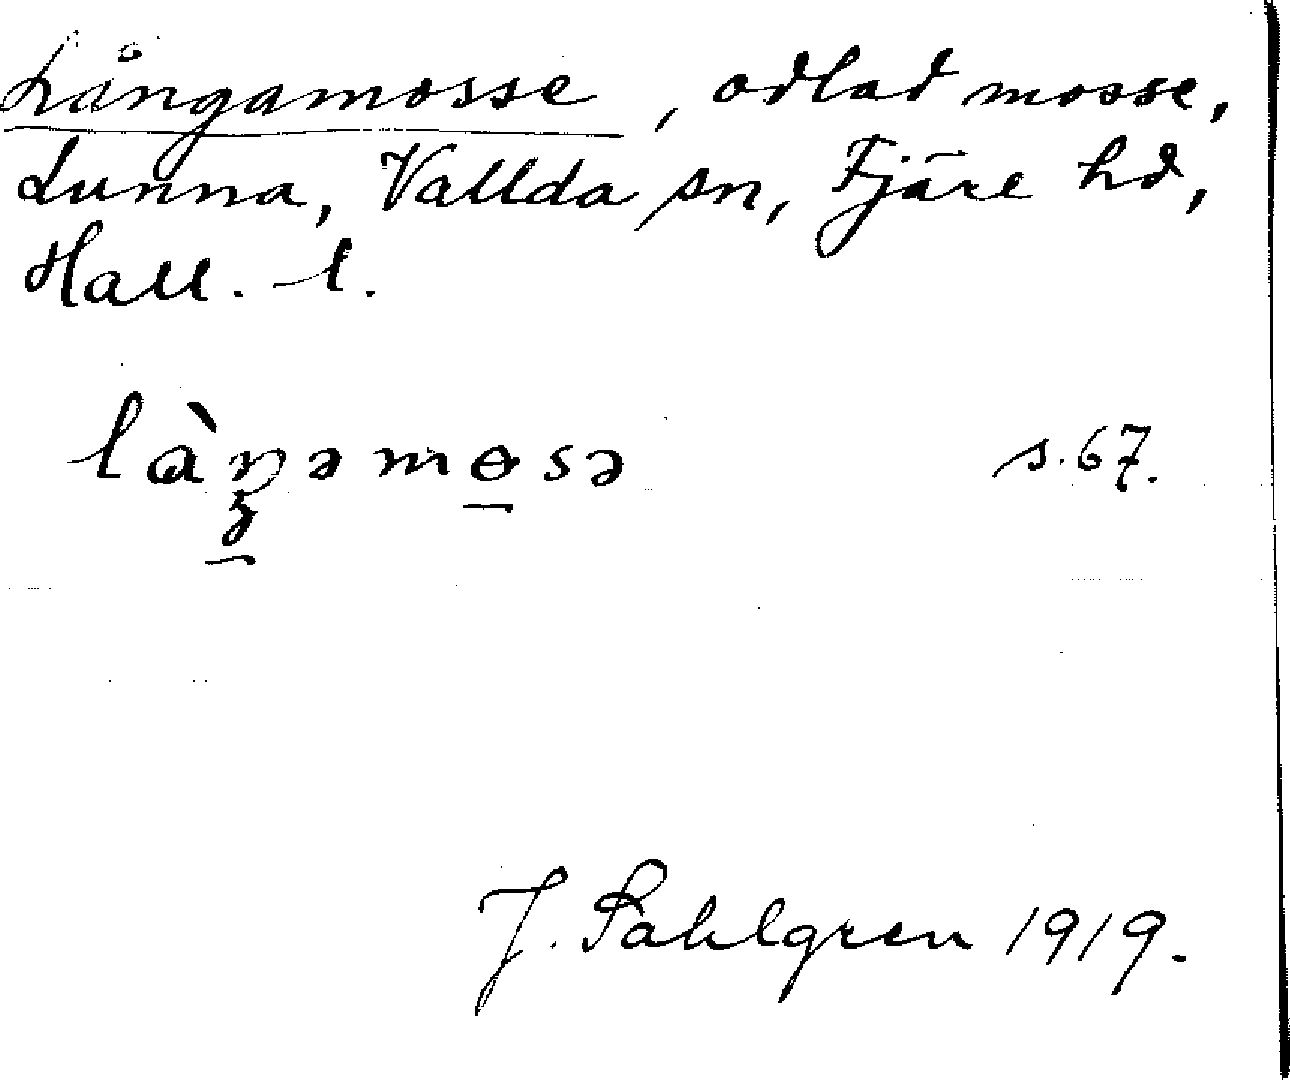 Långamosse, odlad mosse,
Lunna, Vallda sn, Fjäre hd,
Hall. l.
làŋəmosə s.67.
J. Sahlgren 1919.